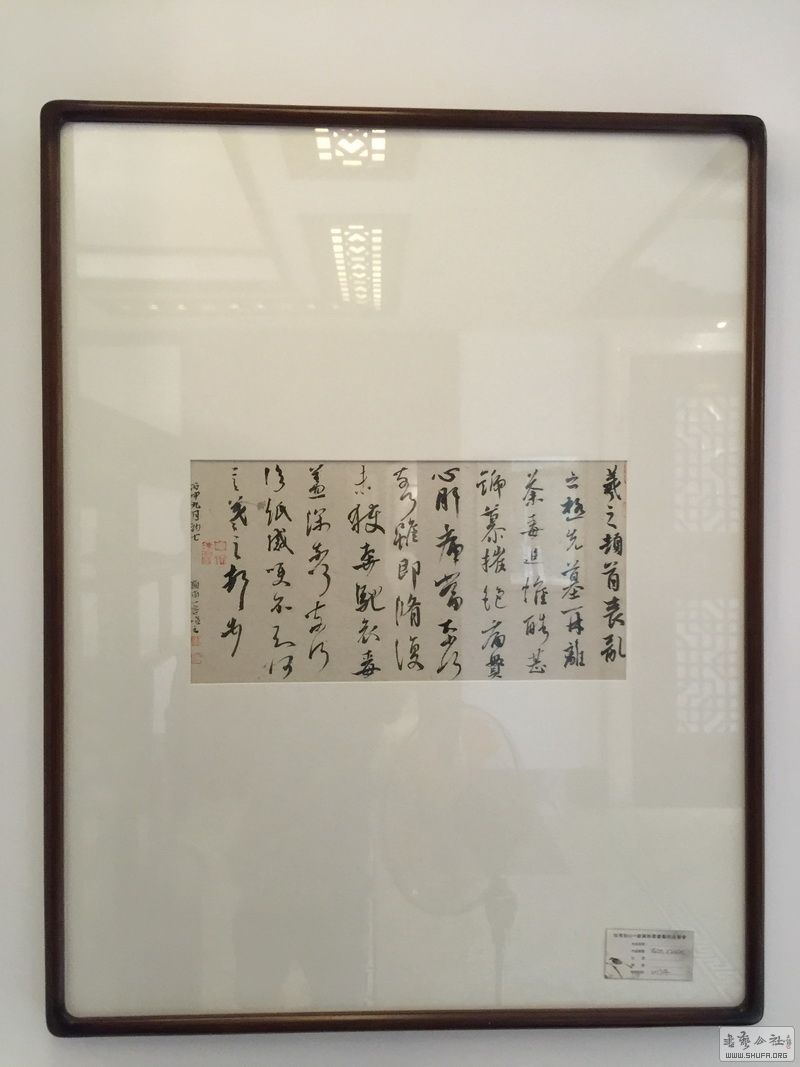 羲之頓首喪亂
之極先墓再離
荼毒追惟酷甚
號慕摧絕痛貫
心肝痛當奈何
奈何雖即脩復
未獲奔馳哀毒
益深奈何奈何
臨紙感哽不知何
言羲之頓首
丙申九月初七
書藝公社
WWW.SHUFA.ORG